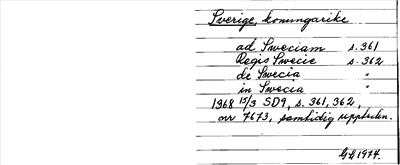 Sverige, konungarike
ad Sweciam s. 361
Regis Swecie s. 362
de Swecia "
in Swecia "
1368 15/3 SD9, s. 361, 362,
nr 7673, samtidig uppteckn.
GG 1974.